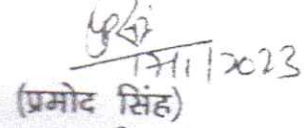 17/11/2023
(प्रमोद सिंह)